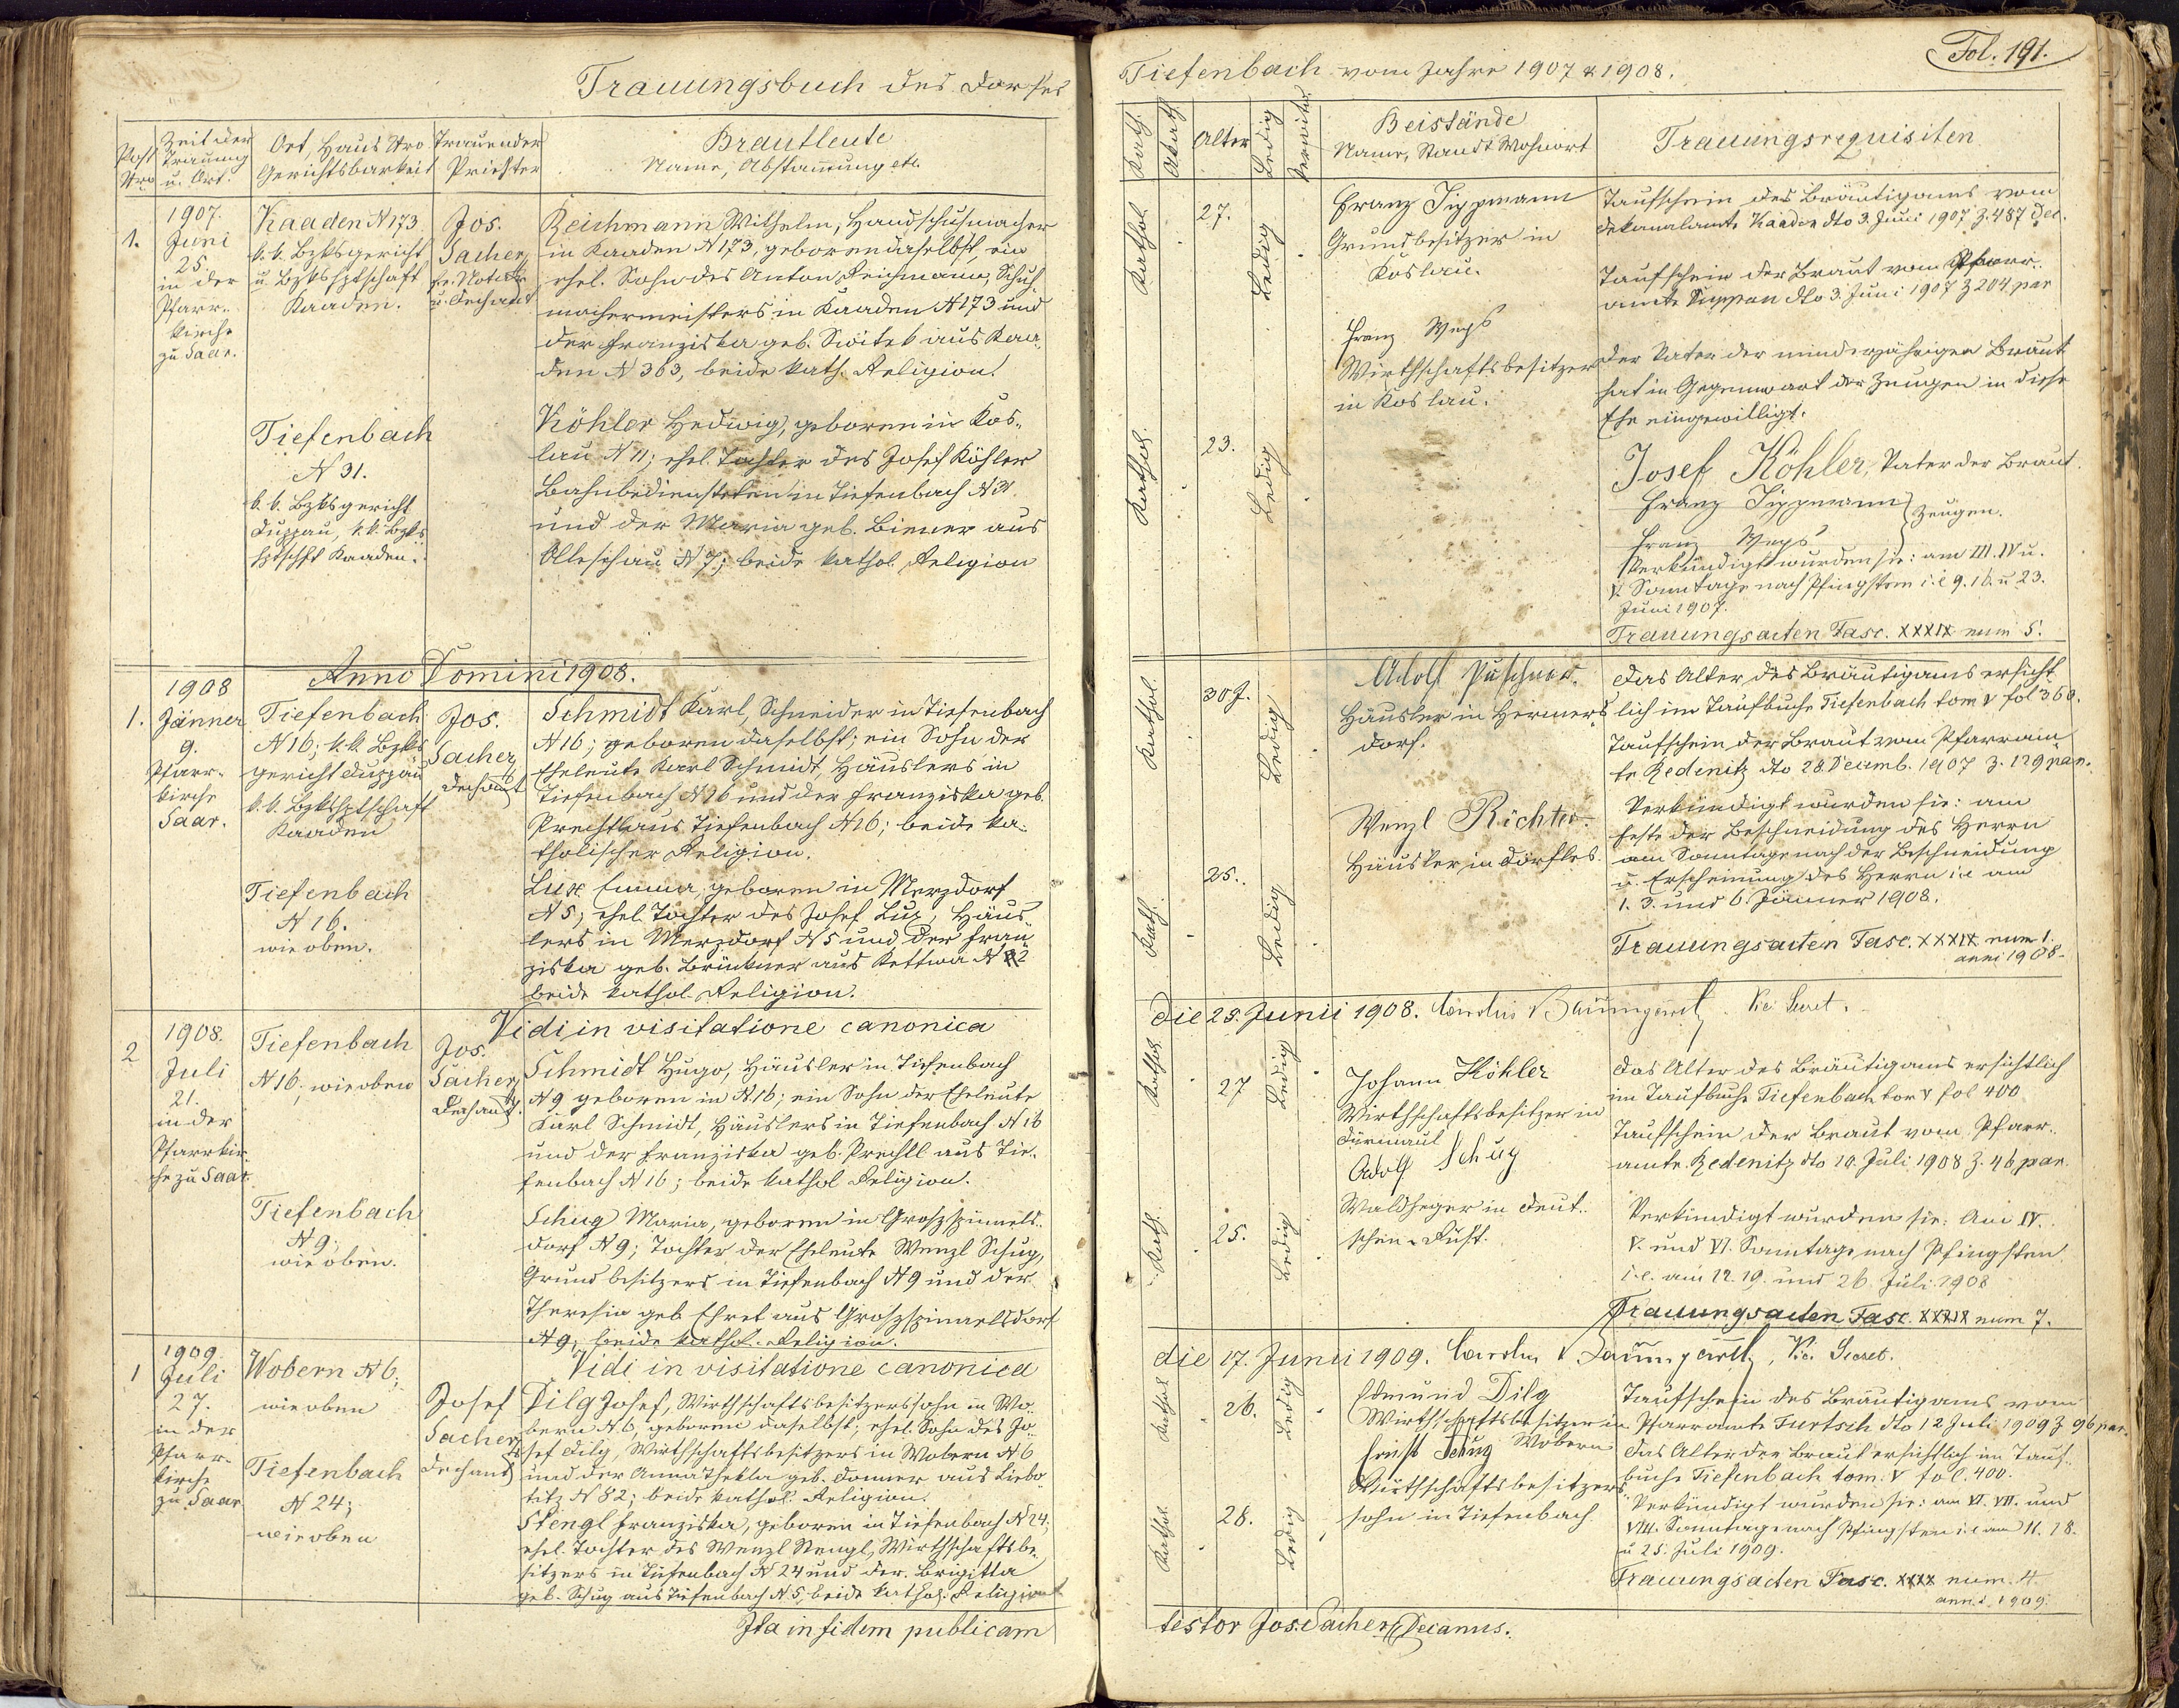 Trauungsbuch des Dorfes
Post Nro
Zeit der Trauung u. Ort.
Ort, Haus Nro Gerichtsbarkeit
Trauender Priester
Brautleute
Name, Abstammung etc.
1.
1907.
Juni
25.
in der
Pfarr-
kirche
zu Saar.
Kaaden N 173
k. k. Bzksgericht
u Bzkshptschaft
Kaaden.
Jos.
Sacher,
u. Dechant
Reichmann Wilhelm, Handschuhmacher
in Kaaden N 173, geboren daselbst, ein
ehel. Sohn des Anton Reichmann, Schuh-
machermeisters in Kaaden N 173 und
der Franziska geb. Switek aus Kaa-
den N 363, beide kath. Religion.
Tiefenbach
N 31.
k. k. Bzksgericht
Duppau, k. k. Bzks
hptschft Kaaden.
Köhler Hedwig, geboren in Kos-
lau N 11; ehel. Tochter des Josef Köhler
Bahnbediensteten in Tiefenbach N 31.
und der Maria geb. Biener aus
Olleschau N 7; beide kathol. Religion
Anno Domini 1908.
1.
1908
Jänner
9.
Pfarr-
kirche
Saar.
Tiefenbach
N 16; k. k. Bzks
gericht Duppau
k. k. Bzkshptschaft
Kaaden
Jos.
Sacher,
Dechant
Schmidt Karl, Schneider in Tiefenbach
N 16; geboren daselbst; ein Sohn der
Eheleute Karl Schmidt, Häuslers in
Tiefenbach N 16 und der Franziska geb.
Prechtl aus Tiefenbach N 16; beide ka-
tholischer Religion.
Tiefenbach
N 16.
wie oben.
Lux Emma, geboren in Merzdorf
N 5; ehel. Tochter des Josef Lux, Häus-
lers in Merzdorf N 5 und der Fran-
ziska geb. Brückner aus Kettwa N
beide kathol. Religion.
Vidi in visitatione canonica
2
1908.
Juli
21.
in der
Pfarrkir-
che zu Saar.
Tiefenbach
N 16; wie oben
Jos.
Sacher,
Dechant.
Schmidt Hugo, Häusler in Tiefenbach
N 9 geboren in N 16; ein Sohn der Eheleute
Karl Schmidt, Häuslers in Tiefenbach N 16
und der Franziska geb. Prechtl aus Tie-
fenbach N 16; beide kathol Religion.
Tiefenbach
N 9.
wie oben.
Schug Maria, geboren in Groszspinnels-
dorf N 9; Tochter der Eheleute Wenzl Schug,
Grundbesitzers in Tiefenbach N 9 und der
Theresia geb Ehret aus Groszspinnelsdorf
N 9; beide kathol. Religion.
Vidi in visitatione canonica
1
1909
Juli
27.
in der
Pfarr-
kirche
zu Saar
Wobern N 6;
wie oben
Josef
Sacher,
Dechant
Dilg Josef, Wirthschaftsbesitzerssohn in Wo-
bern N 6, geboren daselbst; ehel. Sohn des Jo-
sef Dilg, Wirthschaftsbesitzers in Wobern N 6
und der Anna Thekla geb. Donner aus Liebo-
titz N 82; beide kathol. Religion.
Tiefenbach
N 24;
wie oben
Stengl Franziska, geboren in Tiefenbach N 24;
ehel. Tochter des Wenzl Stengl, Wirthschaftsbe-
sitzers in Tiefenbach N 24 und der Brigitta
geb. Schug aus Tiefenbach N 5; beide kathol. Religion
Ita in fidem publicam
Fol. 191.
Tiefenbach vom Jahre 1907 & 1908.
Kath.
Akath.
Alter
Ledig
Verwitw.
Beistände
Name, Standt Wohnort
Trauungsrequisiten
Kathol.
27.
Ledig
Franz Tippmann
Grundbesitzer in
Koslau.
Franz
Wirthschaftsbesitzer
in Koslau.
Kathol.
23.
Ledig
Taufschein des Bräutigams vom
Dekanalamte Kaaden dto 3. Juni 1907 Z. 487 Dec.
Taufschein der Braut vom Pfarr-
amte Duppau dto 3. Juni 1907 Z 204 par
Der Vater der minderjährigen Braut
hat in Gegenwart der Zeugen in diese
Ehe eingewilligt.
Josef Köhler, Vater der Braut.
Franz Tippmann
Franz
Zeugen.
Verkündigt wurden sie: am III. IV u.
V. Sonntage nach Pfingsten i. e 9. 16. u 23.
Juni 1907.
Trauungsacten Fasc. XXXIX num 5.
Kathol.
30 J.
Ledig
Adolf
Häusler in Hermers
dorf.
Wenzl Richter.
Häusler in Dörfles.
Kath.
25.
Ledig
Das Alter des Bräutigams ersicht-
lich im Taufbuche Tiefenbach tom V fol 360.
Taufschein der Braut vom Pfarram-
te Redenitz dto 28. Decemb. 1907 Z. 129 par.
Verkündigt wurden sie: am
Feste der Beschneidung des Herrn
am Sonntage nach der Beschneidung
u. Erscheinung des Herrn i. e am
1. 3. und 6. Jänner 1908.
Trauungsacten Fasc. XXXIX num 1.
anni 1908.
die 25. Junii 1908. Carolus Baumgartl, Vic. Secret.
Kathol
27
Ledig
Johann Köhler
Wirthschaftsbesitzer in
Dürmaul
Adolf Schug
Waldheger in Deut-
schen-Rust.
Kath.
25.
Ledig
Das Alter des Bräutigams ersichtlich
im Taufbuche Tiefenbach tom V fol 400
Taufschein der Braut vom Pfarr-
amte Redenitz dto 10. Juli 1908 Z. 46 par.
Verkündigt wurden sie: Am IV.
V. und VI. Sonntage nach Pfingsten
i. e. am 12. 19. und 26. Juli 1908
Trauungsacten Fasc. XXXIX num 7.
die 17. Junii 1909. Carolus Baumgartl, Vic. Secret.
Kathol
26.
Ledig
Edmund Dilg
Wirthschaftsbesitzer in
Wobern
Ernst Schug
Wirthschaftsbesitzers
sohn in Tiefenbach
Kathol.
28.
Ledig
Taufschein des Bräutigams vom
Pfarramte Furtsch dto 12 Juli 1909 Z 96 par.
Das Alter der Braut ersichtlich im Tauf-
buche Tiefenbach tom. V fol. 400.
Verkündigt wurden sie: am VI. VII. und
VIII. Sonntage nach Pfingsten i. e am 11. 18.
u 25. Juli 1909.
Trauungsacten Fasc. XXXX num. 4.
anni 1909.
testor Jos. Sacher, Decanus.